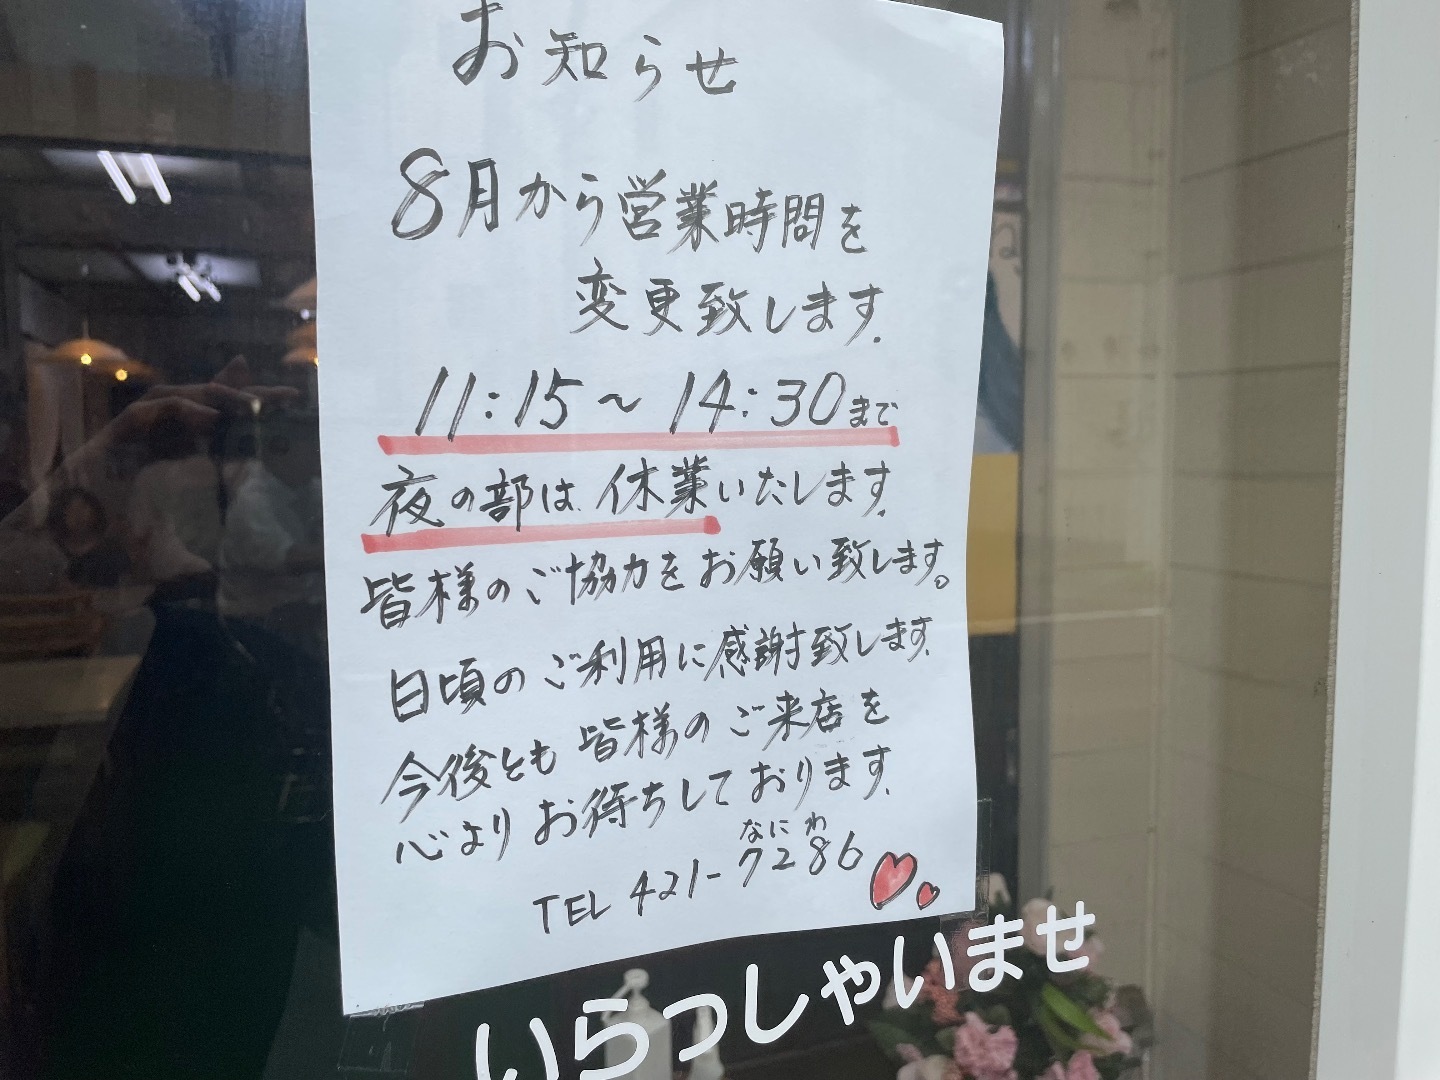 お知らせ
8月から営業時間を
変更致します.
11:15～14:30まで
夜の部は休業いたします.
皆様のご協力をお願い致します。
日頃のご利用に感謝致します.
今後とも皆様のご来店を
心よりお待ちしております.
なにわ
TEL 421-7286
いらっしゃいませ